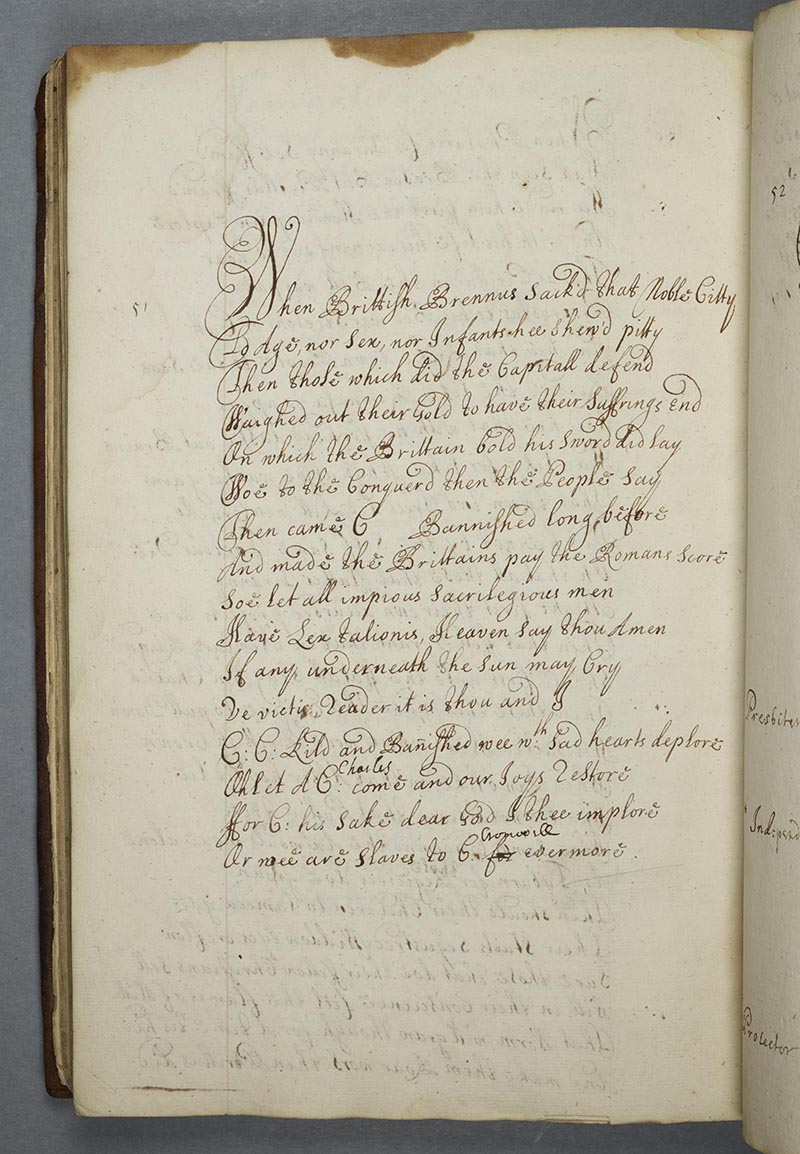 51
When Brittish Brennus Sack'd that Noble Citty
No Age, nor Sex, nor Infants hee Shew'd pitty
Then those which did the Capitall defend
Waighed out their Gold to have their Suffrings end
On which the Brittain bold his Sword did lay
Woe to the Conquerd then the People Say
Then came C Bannished long before
And made the Brittains pay the Romans Score
Soe let all impious Sacrilegious men
Have Lex talionis, Heaven Say thou Amen
If any underneath the Sun may Cry
Ve victis Reader it is thou and I
C: C: Kild and Banished wee wth Sad hearts deplore
Oh let A C: Charles come and our Joys Restore
ffor C: his Sake dear God I thee implore
Or wee are Slaves to C: Cromwill for evermore.
52
Presbiter
Ind:pend
Protector